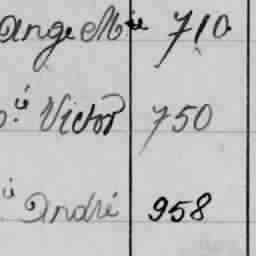 Ange Mie 710
Victor 750
André 958